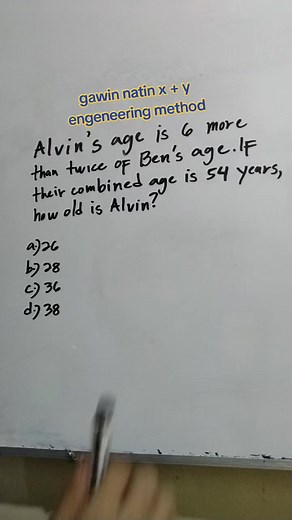 gawin natin x + y
engeneering method
Alvin's age is 6 more
than twice of Ben's age. IF
their combined age is 54 years,
how old is Alvin?
a.) 26
b.) 28
c.) 36
d.) 38